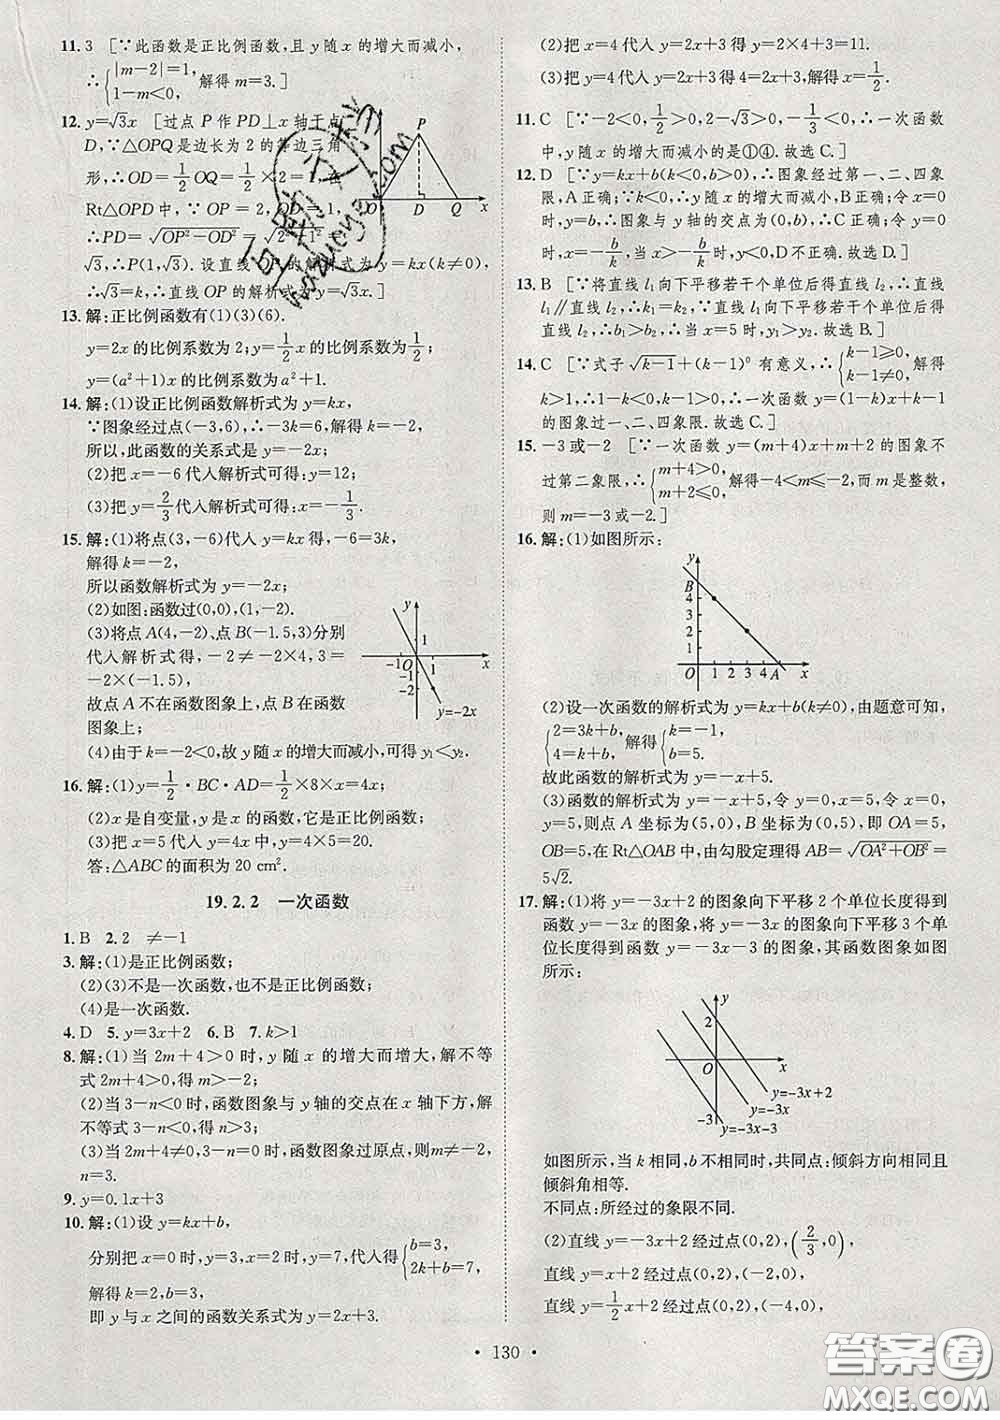 11. 3 [∵此函数是正比例函数,且 y随 x 的增大而减小,
∴{|m−2|=1, 1−m<0, 解得 m=3.]
12. y=√3x [过点 P 作 PD⊥x 轴于点
D,∵△OPQ是边长为 2 的等边三角
形,∴OD=1/2 OQ=1/2×2=1. 在
Rt△OPD 中,∵OP=2,OD=1,
∴PD=√(OP²−OD²)=√(2²−1²)=
√3,∴P(1,√3). 设直线 OP的解析式为 y=kx(k≠0),
∴√3=k,∴直线 OP 的解析式为 y=√3x.]
P
O D Q x
13. 解:正比例函数有(1)(3)(6).
y=2x 的比例系数为 2;y=1/2x 的比例系数为1/2;
y=(a²+1)x 的比例系数为 a²+1.
14. 解:(1)设正比例函数解析式为 y=kx,
∵图象经过点(−3,6),∴−3k=6,解得 k=−2,
所以,此函数的关系式是 y=−2x;
(2)把 x=−6 代入解析式可得:y=12;
(3)把 y=2/3代入解析式可得:x=−1/3.
15. 解:(1)将点(3,−6)代入 y=kx 得,−6=3k,
解得 k=−2,
所以函数解析式为 y=−2x;
(2)如图:函数过(0,0),(1,−2).
(3)将点 A(4,−2)、点 B(−1.5,3)分别
代入解析式得,−2≠−2×4,3=
−2×(−1.5),
故点 A 不在函数图象上,点 B 在函数
图象上;
(4)由于 k=−2<0,故 y 随 x 的增大而减小,可得 y₁<y₂.
y
1
−1 O 1 x
−1
−2
y=−2x
16. 解:(1)y=1/2·BC·AD=1/2×8×x=4x.
(2)x 是自变量,y 是 x 的函数,它是正比例函数.
(3)把 x=5 代入 y=4x 中,y=4×5=20.
答:△ABC 的面积为 20 cm².
19.2.2 一次函数
1. B 2. 2 ≠−1
3. 解:(1)是正比例函数;
(2)(3)不是一次函数,也不是正比例函数;
(4)是一次函数.
4. D 5. y=3x+2 6. B 7. k>1
8. 解:(1)当 2m+4>0 时,y 随 x 的增大而增大,解不等
式 2m+4>0,得 m>−2;
(2)当 3−n<0 时,函数图象与 y 轴的交点在 x 轴下方,解
不等式 3−n<0,得 n>3;
(3)当 2m+4≠0,3−n=0 时,函数图象过原点,则m≠−2,
n=3.
9. y=0.1x+3
10. 解:(1)设 y=kx+b,
分别把 x=0时,y=3,x=2时,y=7,代入得{b=3, 2k+b=7,
解得 k=2,b=3,
即 y 与 x 之间的函数关系式为 y=2x+3.
(2)把 x=4 代入 y=2x+3 得 y=2×4+3=11.
(3)把 y=4 代入 y=2x+3 得 4=2x+3,解得 x=1/2.
11. C [∵−2<0,1/3>0,2>0,−√3<0,−1/3<0,∴一次函数
中,y 随 x 的增大而减小的是①④.故选C.]
12. D [∵y=kx+b(k<0,b>0),∴图象经过第一、二、四象
限,A 正确;∵k<0,∴y 随 x 的增大而减小,B 正确;令 x=0
时,y=b,∴图象与 y 轴的交点为(0,b),∴C 正确;令 y=0
时,x=−b/k,当 x>−b/k时,y<0,D 不正确.故选 D.]
13. B [∵将直线 l₁ 向下平移若干个单位后得直线 l₂,∴直线
l₁∥直线 l₂,∵直线 l₁ 向下平移若干个单位后得
直线 l₂,∴b₁>b₂,∴当 x=5 时,y₁>y₂.故选 B.]
14. C [∵式子 √(k−1)+(k−1)⁰ 有意义,∴{k−1≥0, k−1≠0, 解得
k>1,∴1−k<0,k−1>0,∴一次函数 y=(1−k)x+k−1
的图象过一、二、四象限.故选 C.]
15. −3或−2 [∵一次函数 y=(m+4)x+m+2 的图象不
过第二象限,∴{m+4>0, m+2≤0, 解得−4<m≤−2,而m是整数,
则 m=−3或−2.]
16. 解:(1)如图所示:
y
B
4
3
2
1
O 1 2 3 4 A x
(2)设一次函数的解析式为 y=kx+b(k≠0),由题意可知,
{2=3k+b, 4=k+b, 解得{k=−1, b=5.
故此函数的解析式为 y=−x+5.
(3)函数的解析式为 y=−x+5,令 y=0,x=5,令 x=0,
y=5,则点 A 坐标为(5,0),B 坐标为(0,5),即 OA=5,
OB=5,在 Rt△OAB 中,由勾股定理得 AB=√(OA²+OB²)=
5√2.
17. 解:(1)将 y=−3x+2 的图象向下平移 2 个单位长度得到
函数 y=−3x 的图象,将 y=−3x 的图象向下平移 3 个单
位长度得到函数 y=−3x−3 的图象,其函数图象如图
所示:
y
2
O x
−3
y=−3x+2
y=−3x−3
如图所示,当 k 相同,b 不相同时,共同点:倾斜方向相同且
倾斜角相等.
不同点:所经过的象限不同.
(2)直线 y=−3x+2 经过点(0,2),(2/3,0),
直线 y=x+2 经过点(0,2),(−2,0),
直线 y=1/2x+2 经过点(0,2),(−4,0),
• 130 •
答案圈
MXQE.COM